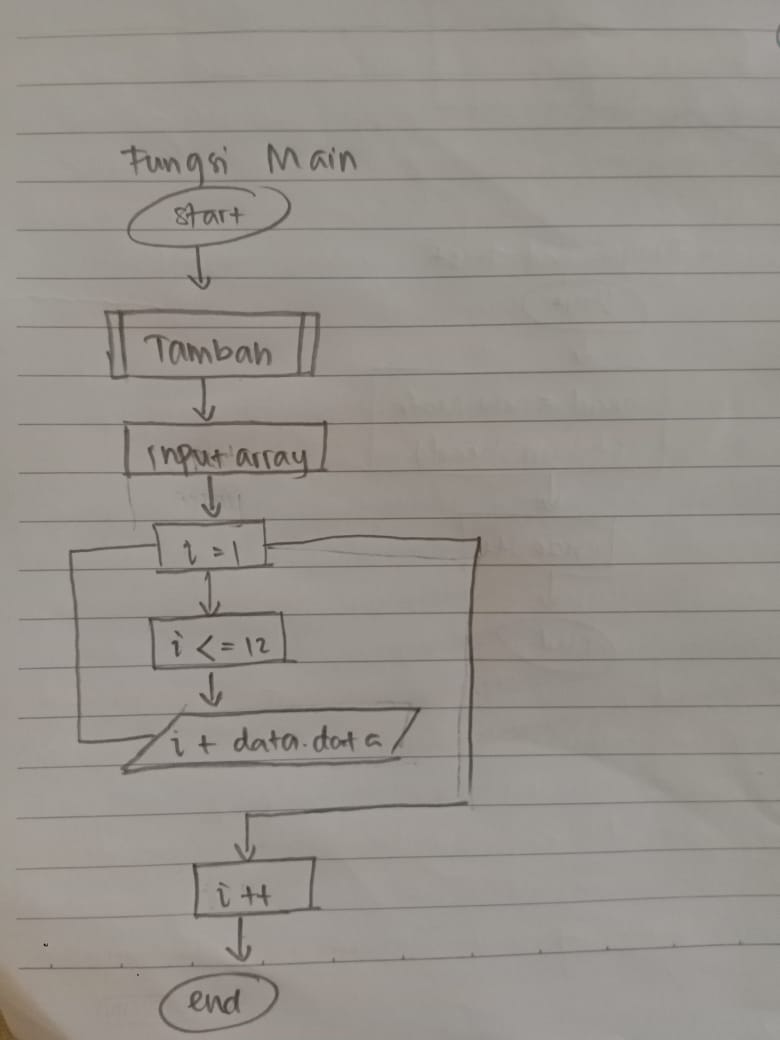 Fungsi Main
start
Tambah
input array
i = 1
i <= 12
i + data.data
i ++
end